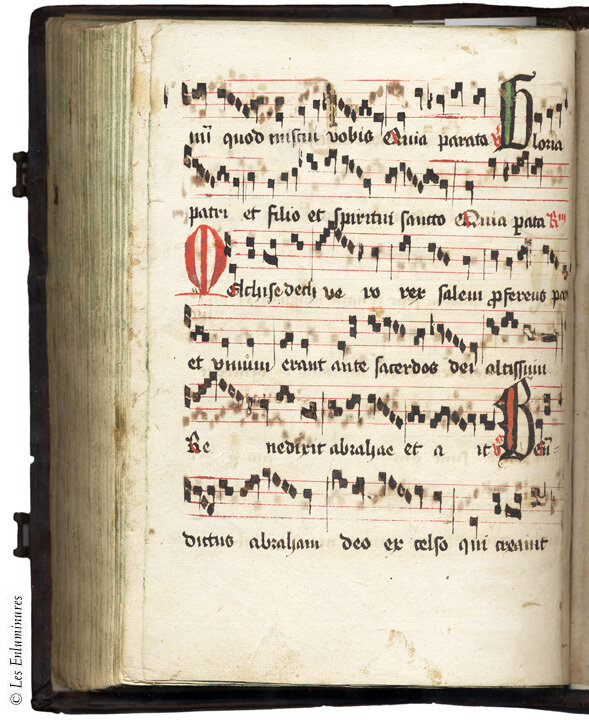 nū quod miscui vobis Quia parata V Gloria
patri et filio et spiritui sancto Quia ꝑata
Melchisedech ve ro rex salem ꝓferens pa
et vinum erant ante sacerdos dei altissimi
Be nedixit abrahae et a it V
dictus abraham deo ex celso qui creauit
© Les Enluminures